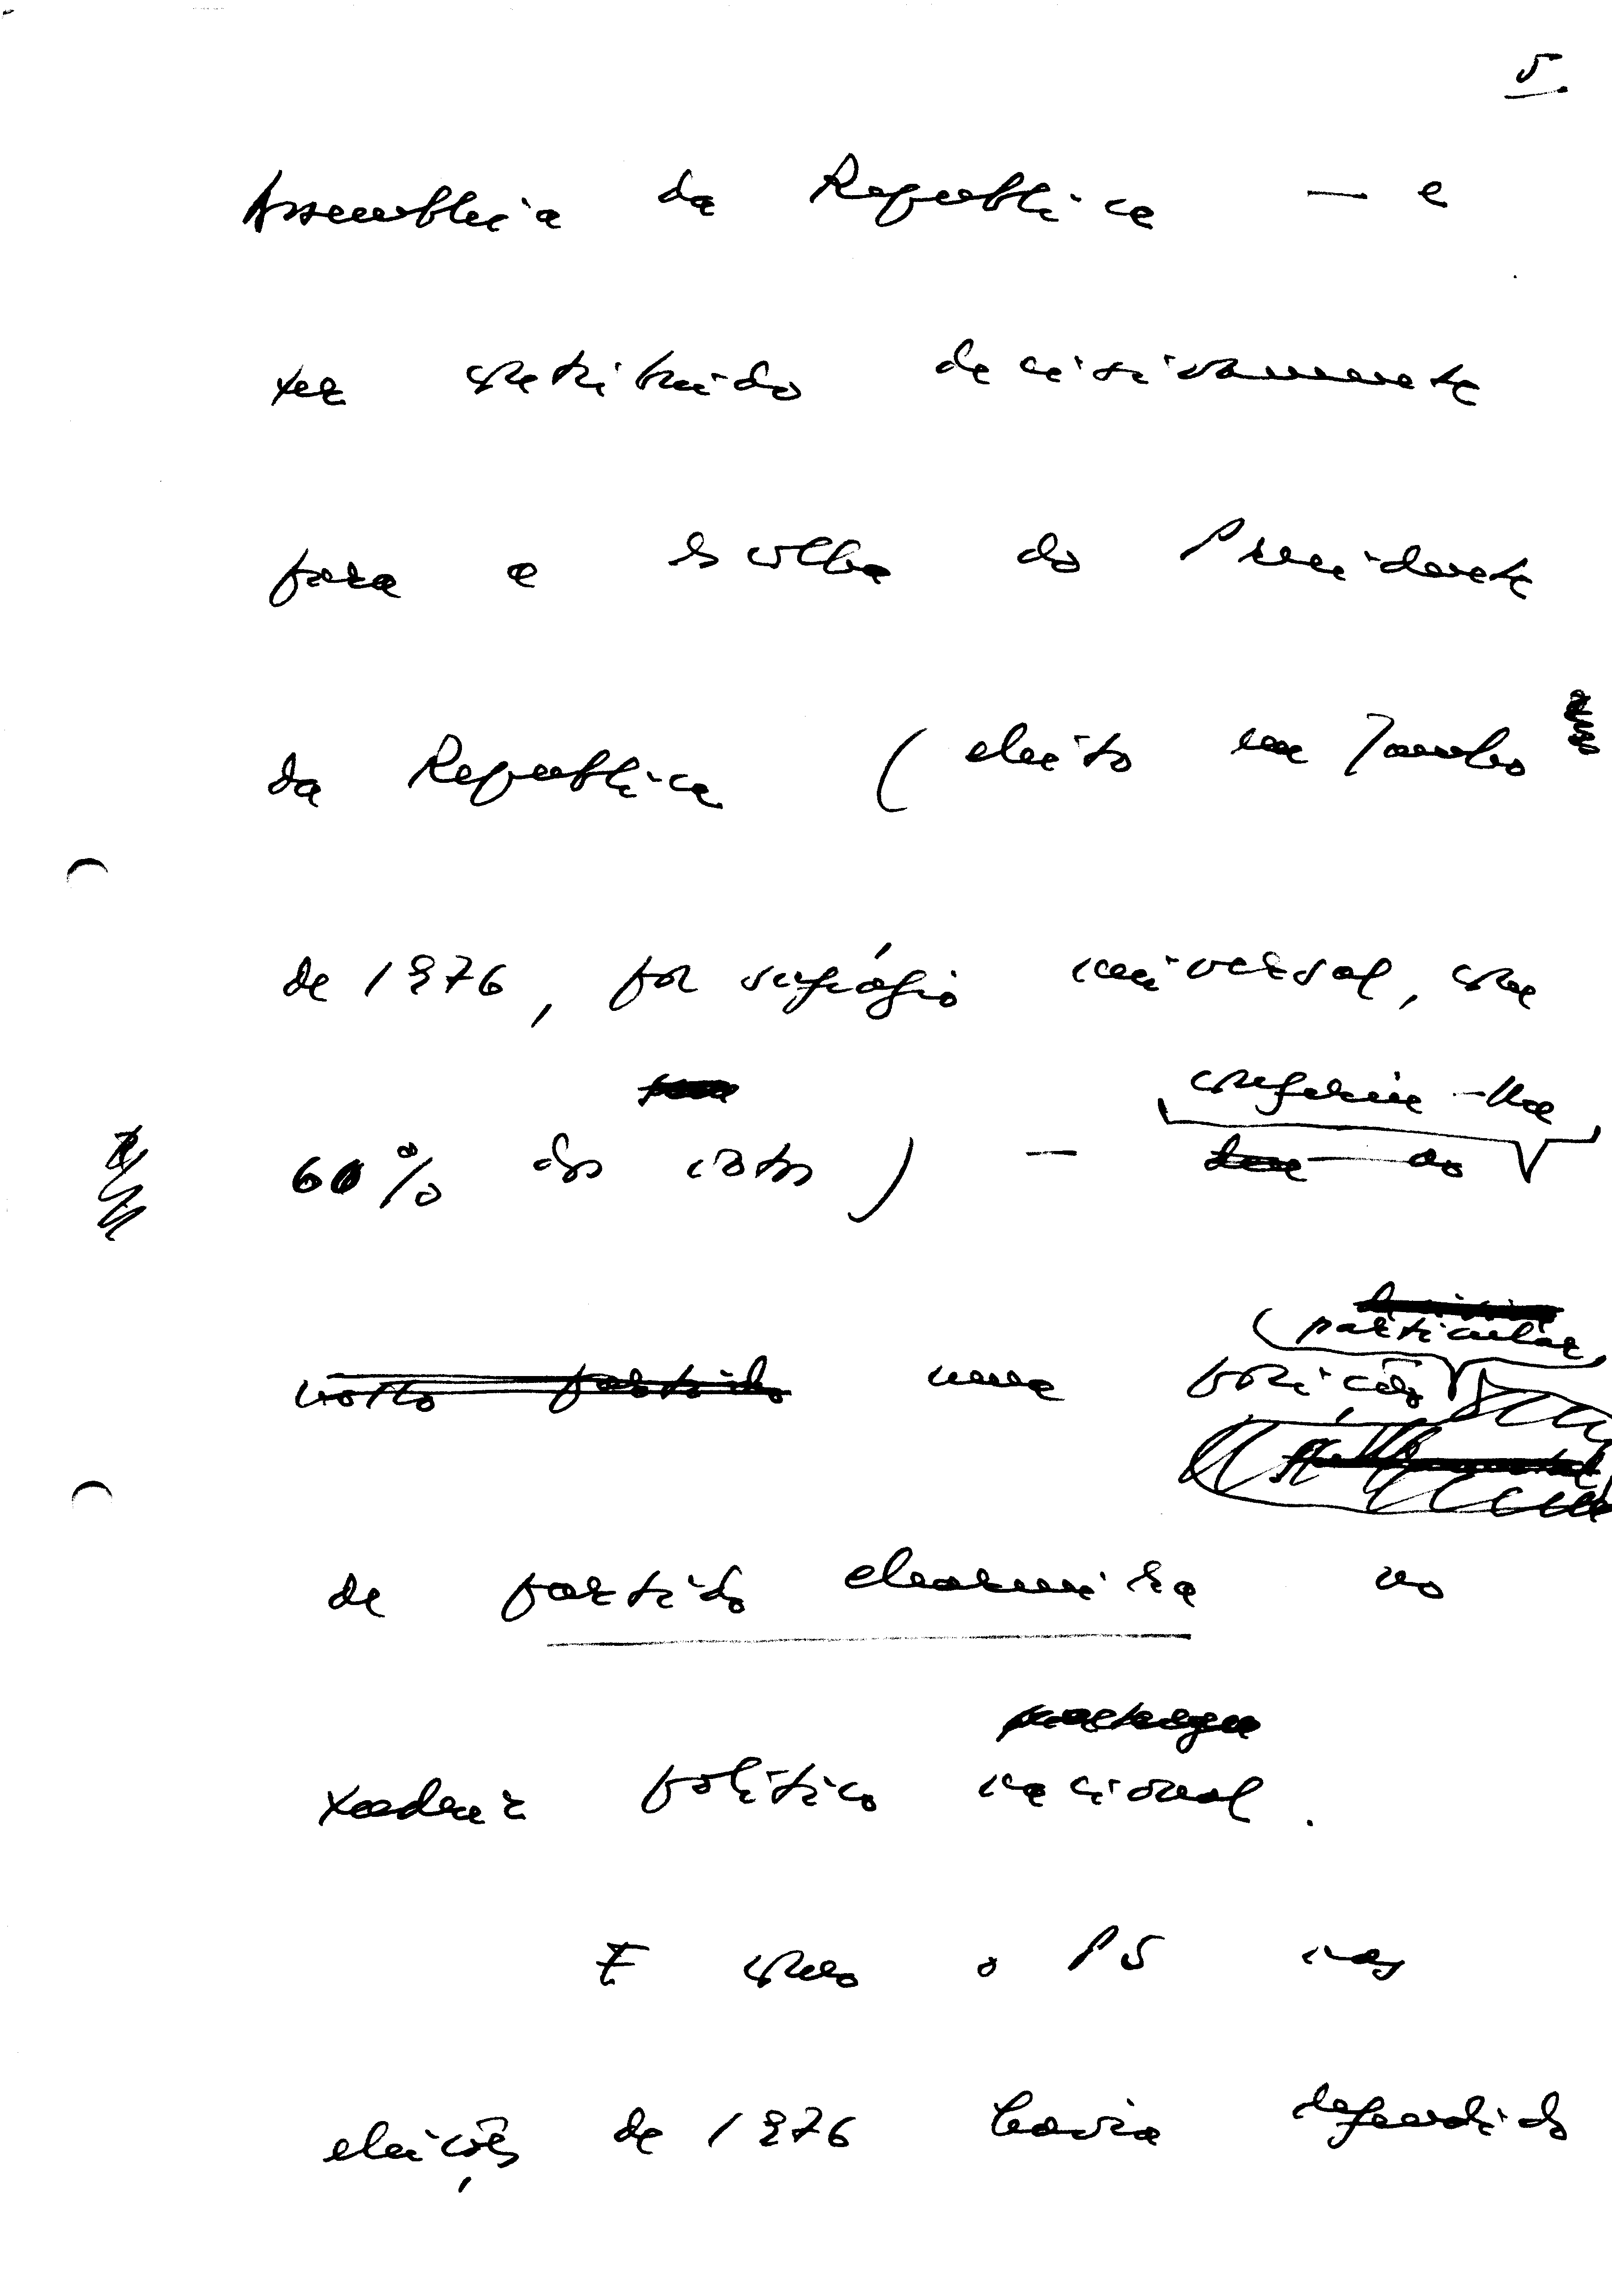 5.
Assembleia da República — e
ter contribuido decisivamente
para a escolha do Presidente
da República (eleito em Junho
de 1976, por sufrágio universal, com
60% dos votos) —
conferiu-lhe
particular
uma posição
de partido charneira no
xadrez político nacional.
E como o PS nas
eleições de 1976 havia defendido